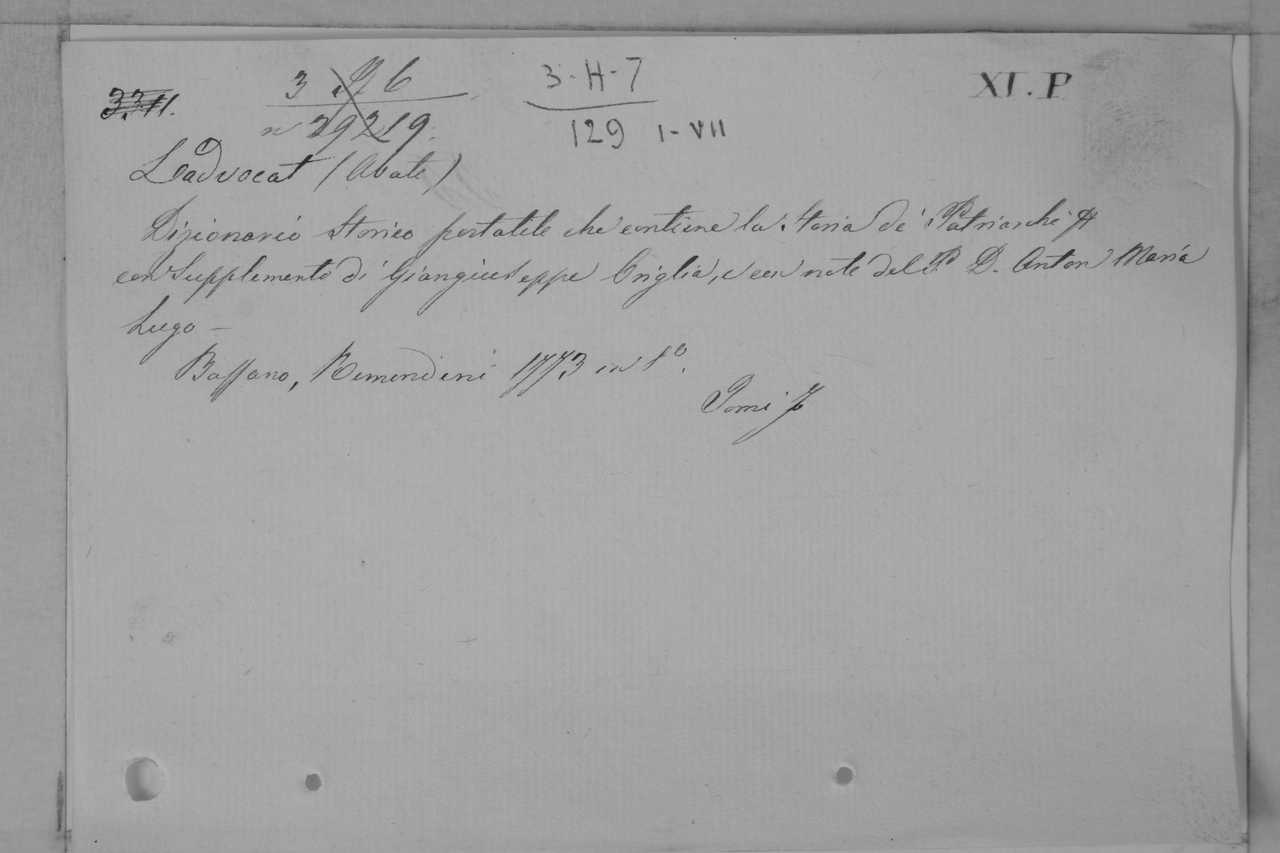 3 . H - 7
XI. P
129 I - VII
n 29219.
Ladvocat (Abate)
Dizionario Storico portatile che contiene la Storia de' Patriarchi
con Supplemento di Giangiuseppe Origlia, e con note del P. D. Anton Maria
Lugo —
Bassano, Remondini 1773 in 8º.
Tomi 7